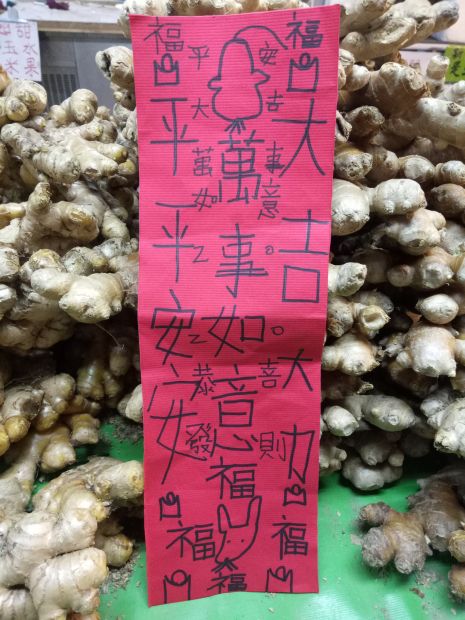 福
福
平安
大吉
萬事
如意
平平安安
萬事如意福
大吉大力
恭喜
發則
福
福
福
水果